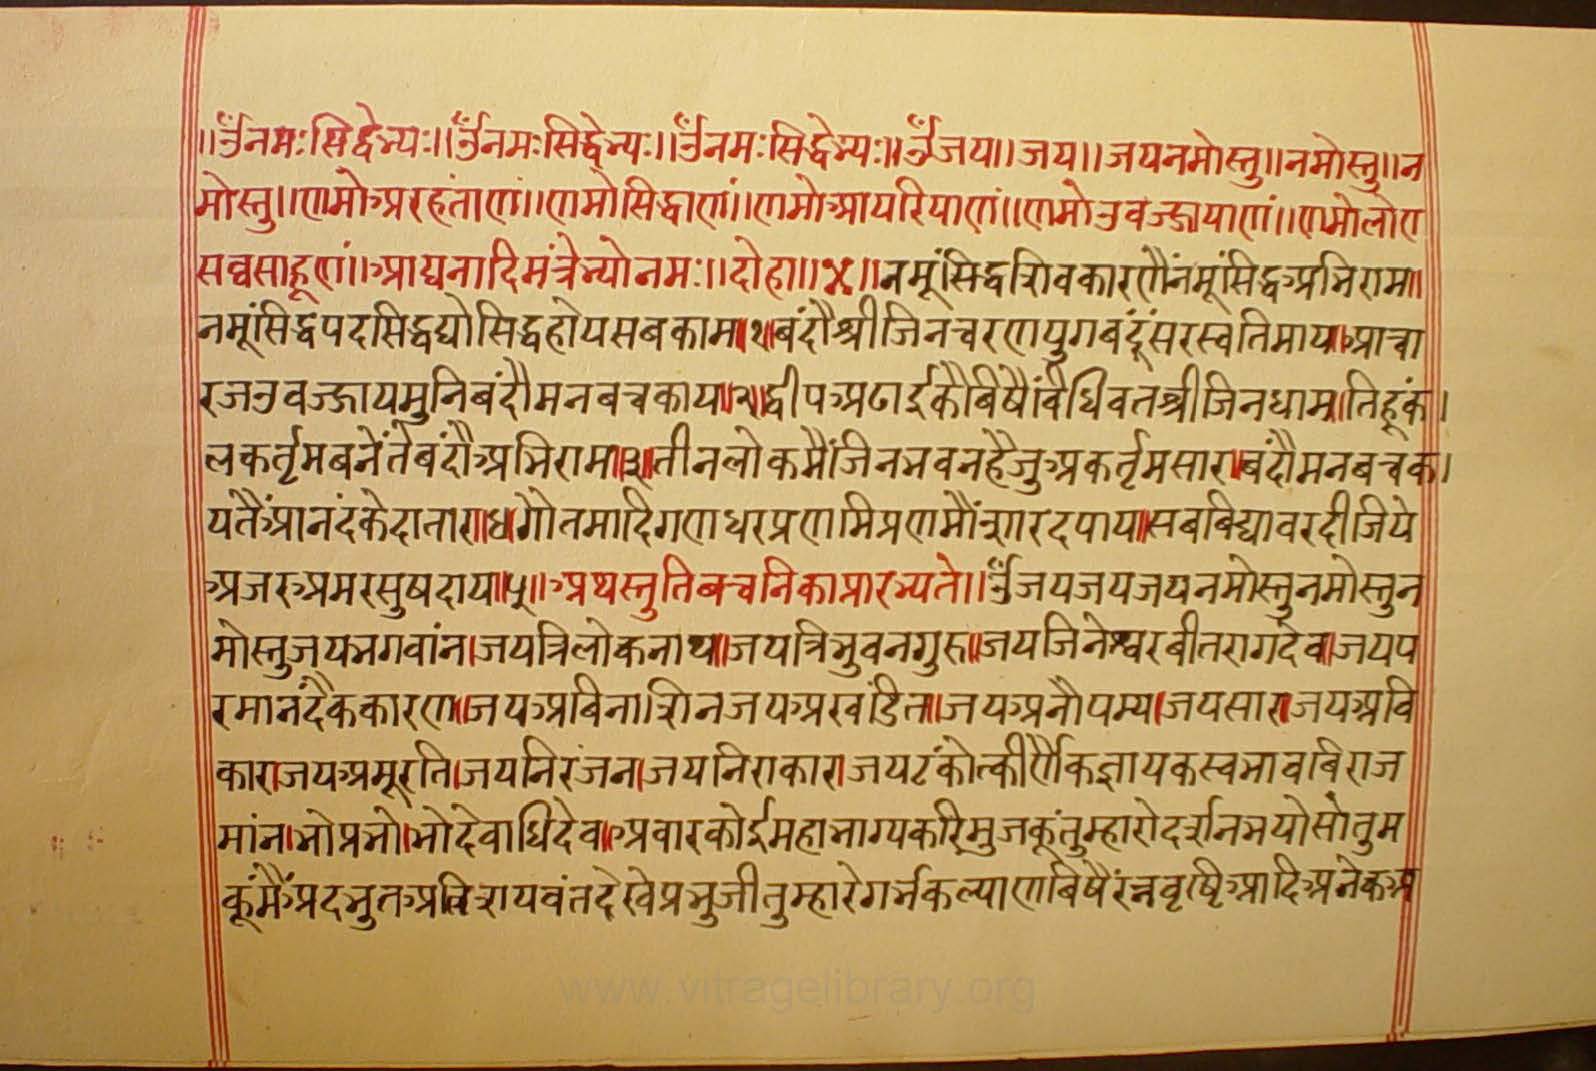 ॥ॐनमःसिद्धेभ्यः॥ॐनमःसिद्धेभ्यः॥ॐनमःसिद्धेभ्यः॥ॐजय॥जय॥जयनमोस्तु॥नमोस्तु॥न
मोस्तु॥णमोअरहंताणं॥णमोसिद्धाणं॥णमोआयरियाणं॥णमोउवज्झायाणं॥णमोलोए
सव्वसाहूणं॥आद्यनादिमंत्रेभ्योनमः॥दोहा॥४॥नमूंसिद्धशिवकारणैंनमूंसिद्धअभिराम॥
नमूंसिद्धपदसिद्धद्योसिद्धहोयसबकाम॥१॥बंदौश्रीजिनचरणयुगबंदूंसरस्वतिमाय॥आचा
रजउवज्झायमुनिबंदौमनबचकाय॥२॥द्वीपअढाईकैबिषैंवैधिवतश्रीजिनधाम॥तिहूंका
लकर्तृमबनेंतेबंदौअभिराम॥३॥तीनलोकमैंजिनभवनहैजुअकर्तृमसार॥बंदौमनबचका
यतैंआनदंकेदातार॥४॥गौतमादिगणधरप्रणमिप्रणमौंशारदपाय॥सबबिद्यावरदीजिये
अजरअमरसुषदाय॥५॥अथस्तुतिबचनिकाप्रारभ्यते॥ॐजयजयजयनमोस्तुनमोस्तुन
मोस्तुजयभगवांन।जयत्रिलोकनाथ॥जयत्रिभुवनगुरु॥जयजिनेश्वरबीतरागदेव॥जयप
रमानंदैककारण॥जयअबिनाशिनजयअखंडित॥जयअनौपम्य।जयसार॥जयअवि
कार॥जयअमूरति।जयनिरंजन।जयनिराकार॥जयटंकोत्कीर्णैकज्ञायकस्वभावबिराज
मांन।भोप्रभो।भोदेवाधिदेव॥अवारकोईमहाभाग्यकरिमुजकूंतुम्हारोदर्शनभयोसोतुम
कूंमैंअदभुतअतिशयवंतदेखेप्रभुजीतुम्हारेगर्भकल्याणबिषैरंत्नवृष्टिआदिअनेकअ
www.vitragelibrary.org